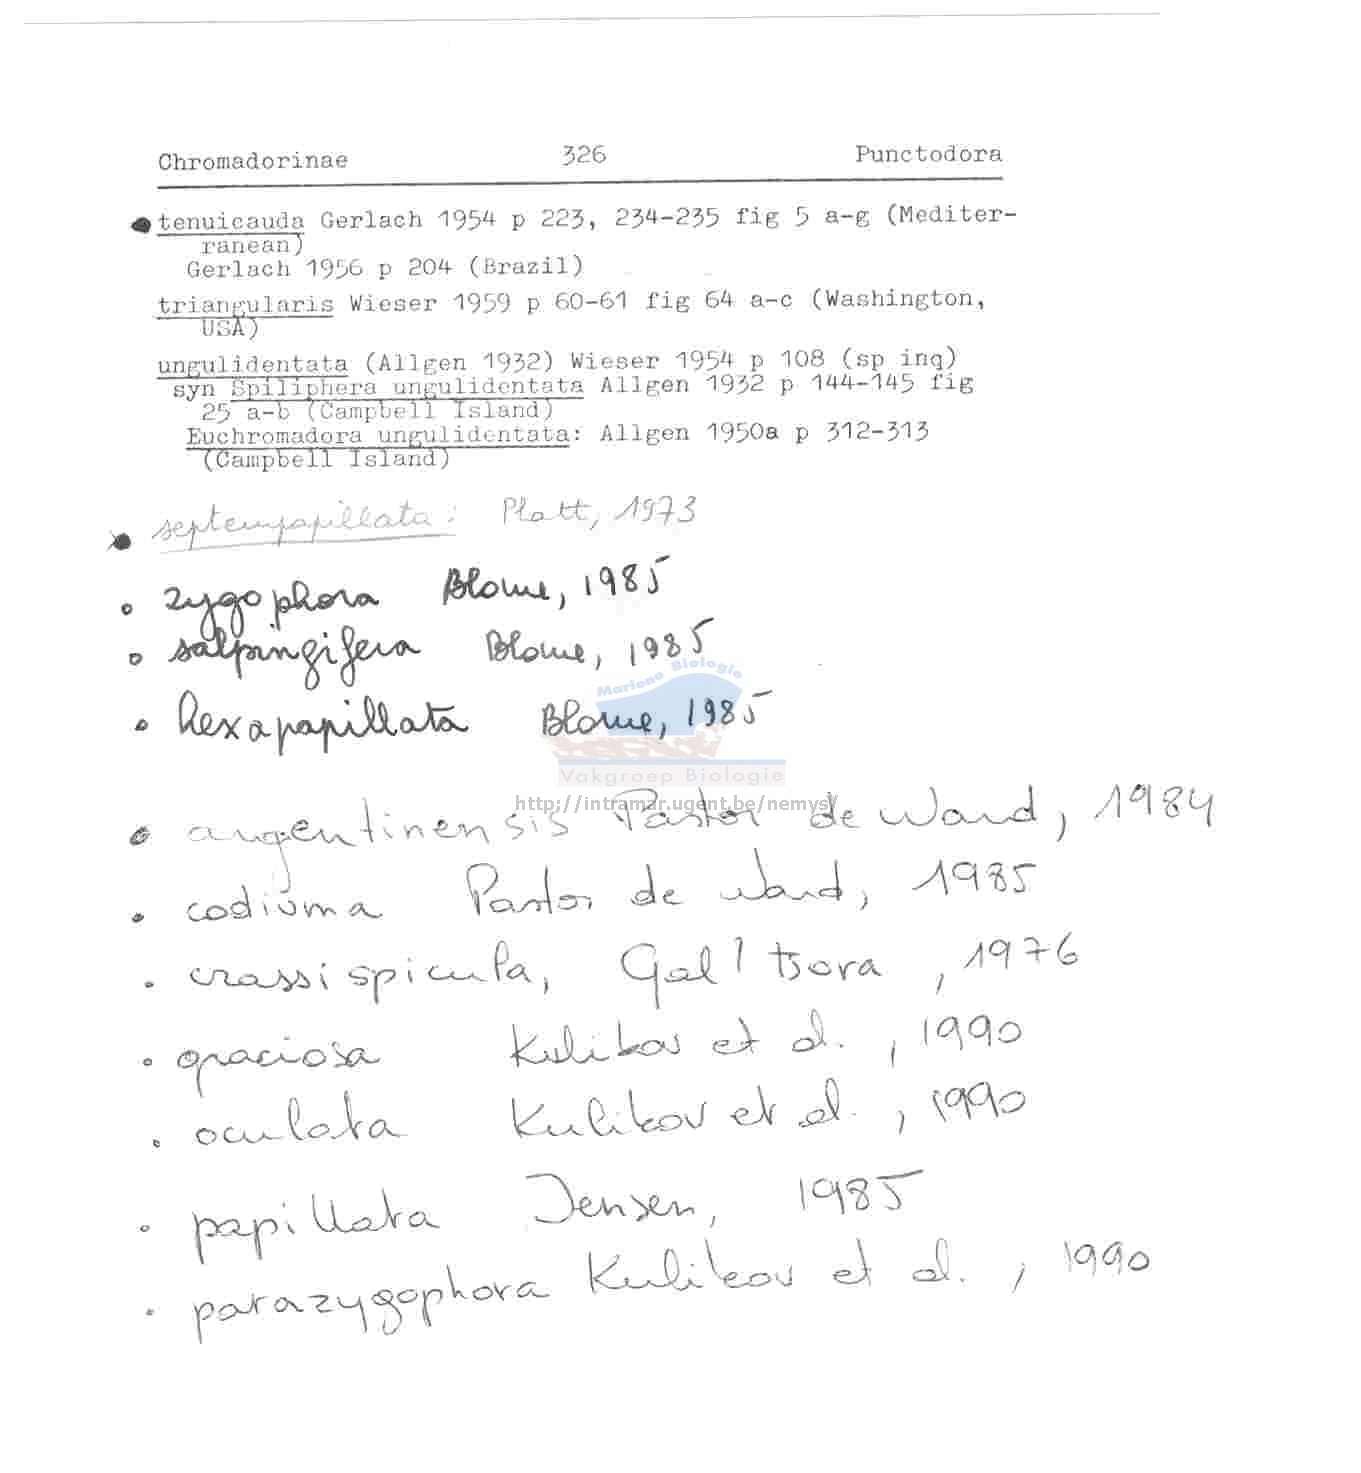 Chromadorinae 326 Punctodora
tenuicauda Gerlach 1954 p 223, 234-235 fig 5 a-g (Mediter-
ranean)
Gerlach 1956 p 204 (Brazil)
triangularis Wieser 1959 p 60-61 fig 64 a-c (Washington,
USA)
ungulidentata (Allgen 1932) Wieser 1954 p 108 (sp inq)
syn Spiliphera ungulidentata Allgen 1932 p 144-145 fig
25 a-b (Campbell Island)
Euchromadora ungulidentata: Allgen 1950a p 312-313
(Campbell Island)
septempapillata: Platt, 1973
zygophora Blome, 1985
salpingifera Blome, 1985
hexapapillata Blome, 1985
Mariene Biologie
Vakgroep Biologie
http://intramar.ugent.be/nemys/
argentinensis Pastor de Ward, 1984
codiuma Pastor de Ward, 1985
crassispicula, Gal'tsova, 1976
graciosa Kulikov et al., 1990
oculata Kulikov et al., 1990
papillata Jensen, 1985
parazygophora Kulikov et al., 1990